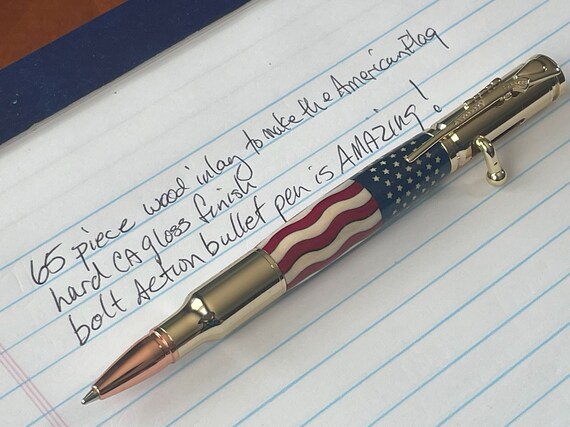 65 piece wood inlay to make the American Flag
hard CA gloss finish
bolt Action bullet pen is AMAZING!